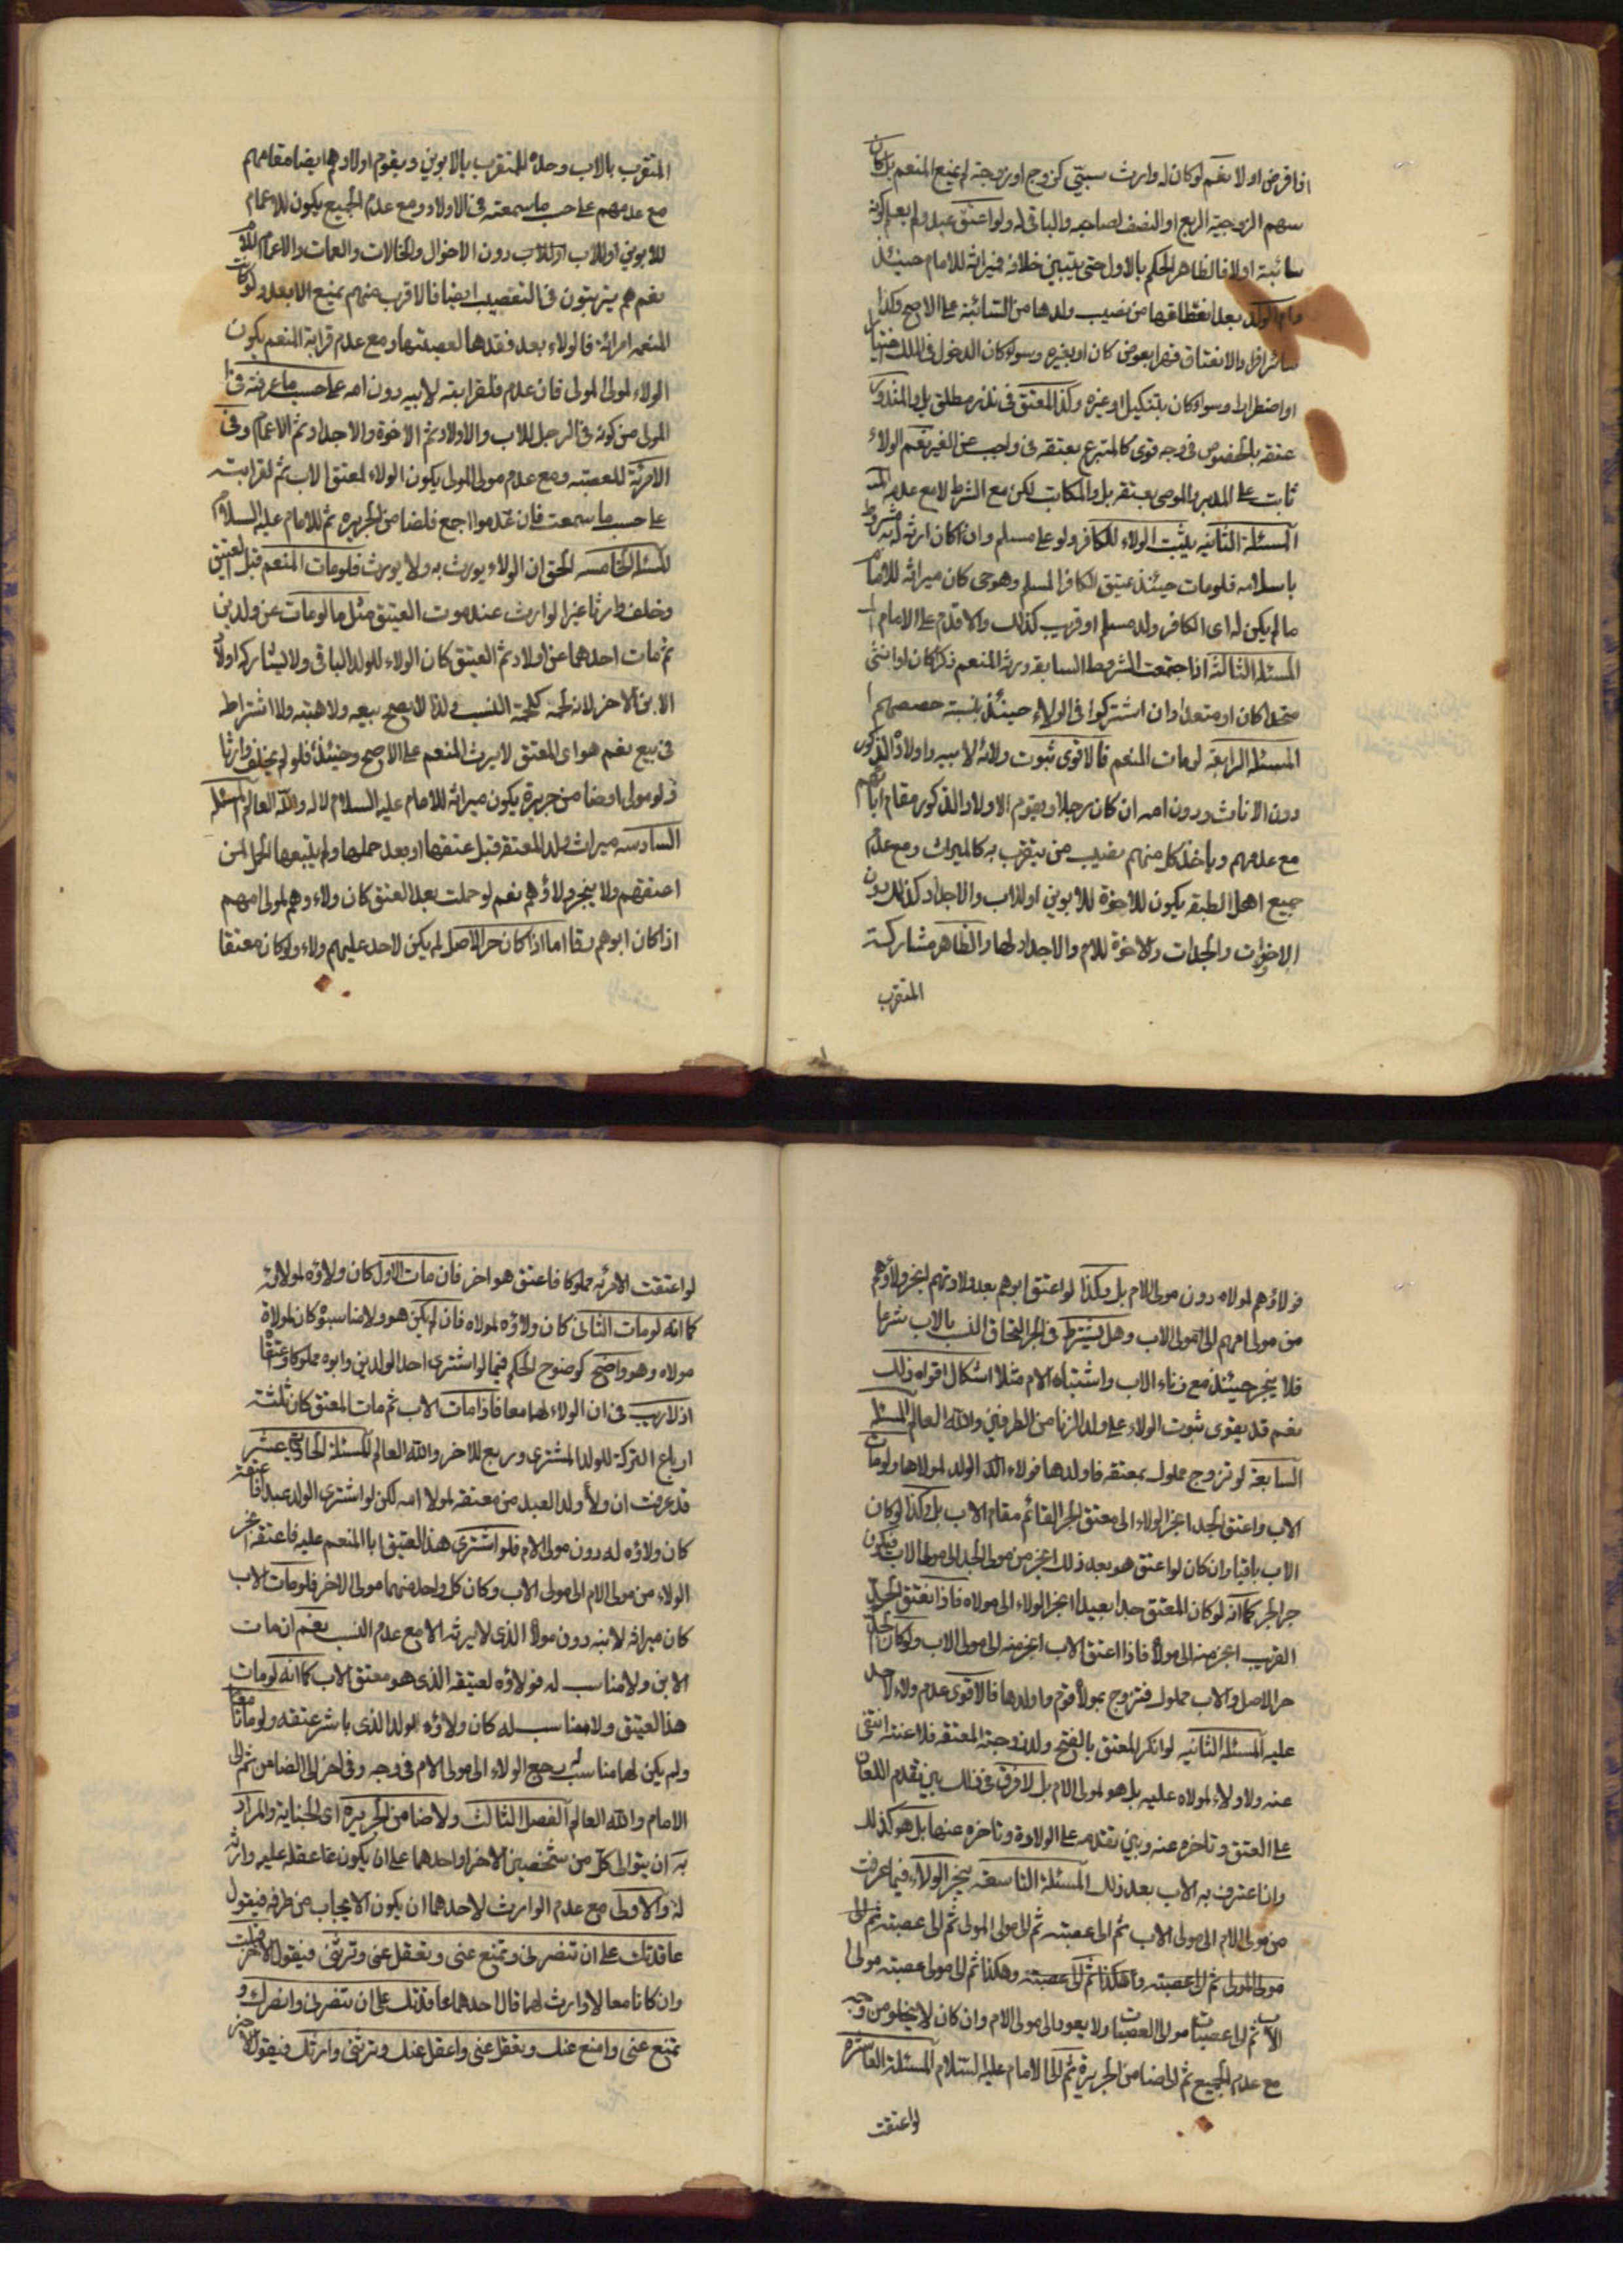 اذا فرض اولا نعم لو كان له وارث سببتي كزوج او زوجة لم يمنع المنعم بل كان
سهم الزوجية الربع او النصف لصاحبه والباقي له ولو اعتق عبد ولم يعلم كونه
سائبة اولا فالظاهر الحكم بالاول حتى يتبين خلافه فميراثه للامام حينئذ
وام الولد بعد انعتاقها من نصيب ولدها من السائبة على الاصح وكذا
سائر افراد الانعتاق قهرا بعوض كان او بغيره وسواء كان الدخول في الملك اختيارا
او اضطرارا وسواء كان بتنكيل او غيره وكذا المعتق في نذر مطلق بل والمنذور
عتقه بالخصوص في وجه قوي كالمتبرع بعتقه في واجب عن الغير نعم الولاء
ثابت على المدبر والموصى بعتقه بل والمكاتب لكن مع الشرط لا مع عدمه
المسئلة الثانيه يثبت الولاء للكافر ولو على مسلم وان كان ارثه له مشروط
باسلامه فلو مات حينئذ عتيق الكافر المسلم وهو حى كان ميراثه للامام
ما لم يكن له اى الكافر ولد مسلم او قريب كذلك والا قدم على الامام
المسئلة الثالثة اذا اجتمعت الشروط السابقه ورثه المنعم ذكرا كان او انثى
متحدا كان او متعددا وان اشتركوا في الولاء حينئذ بنسبة حصصهم
المسئلة الرابعة لو مات المنعم فالاقوى ثبوت ولائه لابيه واولاده الذكور
دون الاناث ودون امه ان كان رجلا ويقوم الاولاد الذكور مقام ابائهم
مع عدمهم وياخذ كل منهم نصيب من يتقرب به كالميراث ومع عدم
جميع اهل الطبقه يكون للاخوة للابوين او للاب والاجداد كذلك دون
الاخوات والجدات والاخوة للام والاجداد لها والظاهر مشاركة
المتقرب
المتقرب بالاب وحده للمتقرب بالابوين ويقوم اولادهم ايضا مقامهم
مع عدمهم على حسب ما سمعته في الاولاد ومع عدم الجميع يكون للاعمام
للابوين او للاب دون الاخوال والخالات والعمات والاعمام للام
نعم هم يترتبون في التعصيب ايضا فالاقرب منهم يمنع الابعد ولو كانت
المنعمه امرائة فالولاء بعد فقدها لعصبتها ومع عدم قرابة المنعم يكون
الولاء لمولى المولى فان عدم فلقرابته لابيه دون امه على حسب ما عرفته في
المولى من كونه في الرجل للاب والاولاد ثم الاخوة والاجداد ثم الاعمام وفي
الامرئة للعصبه ومع عدم مولى المولى يكون الولاء لمعتق الاب ثم لقرابته
على حسب ما سمعت فان عدموا اجمع فلضامن الجريره ثم للامام عليه السلام
المسئلة الخامسه الحق ان الولاء يورث به ولا يورث فلو مات المنعم قبل العتيق
وخلف وارثا غير الوارث عند موت العتيق مثل ما لو مات عن ولدين
ثم مات احدهما عن اولاد ثم العتيق كان الولاء للولد الباقي ولا يشاركه اولاد
الابن الاخر لانه لحمة كلحمة النسب ولذا لا يصح بيعه ولا هبته ولا اشتراطه
في بيع نعم هو اى المعتق لا يرث المنعم على الاصح وحينئذ فلو لم يخلف وارثا
ولو مولى او ضامن جريرة يكون ميراثه للامام عليه السلام لا له والله العالم المسئلة
السادسه ميراث ولد المعتقه قبل عتقها او بعد حملها ولم يتبعها الحمل لمن
اعتقهم ولا ينجر ولاؤهم نعم لو حملت بعد العتق كان ولاءوهم لمولى امهم
اذا كان ابوهم رقا اما اذا كان حر الاصل لم يكن لاحد عليهم ولاء ولو كان معتقا
فولاؤهم لمولاه دون مولى الام بل وكذا لو اعتق ابوهم بعد ولادتهم انجر ولاؤهم
من مولى امهم الى مولى الاب وهل يشترط في الجر التحاق النسب بالاب شرعا
فلا ينجر حينئذ مع زناء الاب واشتباه الام مثلا اشكال اقواه ذلك
نعم قد يقوى ثبوت الولاء على ولد الزنا من الطرفين والله العالم المسئلة
السابعة لو تزوج مملوك بمعتقه فاولدها فولاء الولد لمولاها ولو مات
الاب واعتق الجد انجر الولاء الى معتق الجد القائم مقام الاب بل وكذا لو كان
الاب باقيا وان كان لو اعتق هو بعد ذلك انجر من مولى الجد الى مولى الاب فيكون
جر الجر كما انه لو كان المعتق جدا بعيدا انجر الولاء الى مولاه فاذا انعتق الجد
القريب انجر منه الى مولاه فاذا اعتق الاب انجر منه الى مولى الاب ولو كان الجد
حر الاصل والاب مملوك فتزوج بمولاة قوم واولدها فالاقوى عدم ولاء لاحد
عليه المسئلة الثانيه لو انكر المعتق بالفتح ولد زوجته المعتقه فلاعنته انتفى
عنه ولا ولاء لمولاه عليه بل هو لمولى الام بل لا فرق في ذلك بين تقدم اللعان
على العتق وتاخره عنه وبين تقدمه على الولادة وتاخره عنها بل هو كذلك
وان اعترف به الاب بعد ذلك المسئلة التاسعة ينجر الولاء فيما عرفت
من مولى الام الى مولى الاب ثم الى عصبته ثم الى مولى المولى ثم الى عصبته ثم الى
مولى المولى ثم الى عصبته وهكذا ثم الى عصبته وهكذا ثم الى مولى عصبته مولى
الاب ثم الى عصبات مولى العصبات ولا يعود الى مولى الام وان كان لا يخلو من وجه
مع عدم الجميع ثم الى ضامن الجريرة ثم الى الامام عليه السلام المسئلة العاشره
لو اعتقت
لو اعتقت الامرئه مملوكا فاعتق هو اخر فان مات الاول كان ولاؤه لمولاته
كما انه لو مات الثاني كان ولاؤه لمولاه فان لم يكن هو ولا مناسبوه كان لمولاة
مولاه وهو واضح كوضوح الحكم فيما لو اشترى احد الولدين وابوه مملوكا واعتقاه
اذ لا ريب في ان الولاء لهما معا فاذا مات الاب ثم مات المعتق كان ثلثة
ارباع التركة للولد المشترى وربع للاخر والله العالم المسئلة الحادية عشر
قد عرفت ان ولاء ولد العبد من معتقه لمولا امه لكن لو اشترى الولد عبدا فاعتقه
كان ولاؤه له دون مولى الام فلو اشترى هذا العتيق ابا المنعم عليه فاعتقه انجر
الولاء من مولى الام الى مولى الاب وكان كل واحد منهما مولى الاخر فلو مات الاب
كان ميراثه لابنه دون مولاه الذى لا يرثه الا مع عدم النسب نعم ان مات
الابن ولا مناسب له فولاؤه لعتيقه الذى هو معتق الاب كما انه لو مات
هذا العتيق ولا مناسب له كان ولاؤه للولد الذى باشر عتقه ولو ماتا معا
ولم يكن لهما مناسب رجع الولاء الى مولى الام في وجه وفي اخر الى الضامن ثم الى
الامام والله العالم الفصل الثالث ولا ضامن الجريره اى الجناية والمراد
به ان يتوالى كل من شخصين الاخر او احدهما على ان يكون عاعقله عليه وارثه
له والاولى مع عدم الوارث لاحدهما ان يكون الايجاب من طرفه فيقول
عاقدتك على ان تنصرني وتمنع عني وتعقل عني وترثني فيقول الاخر قبلت
وان كانا معا لا وارث لهما قال احدهما عاقدتك على ان تنصرني وانصرك و
تمنع عني وامنع عنك وتعقل عني واعقل عنك وترثني وارثك فيقول الاخر